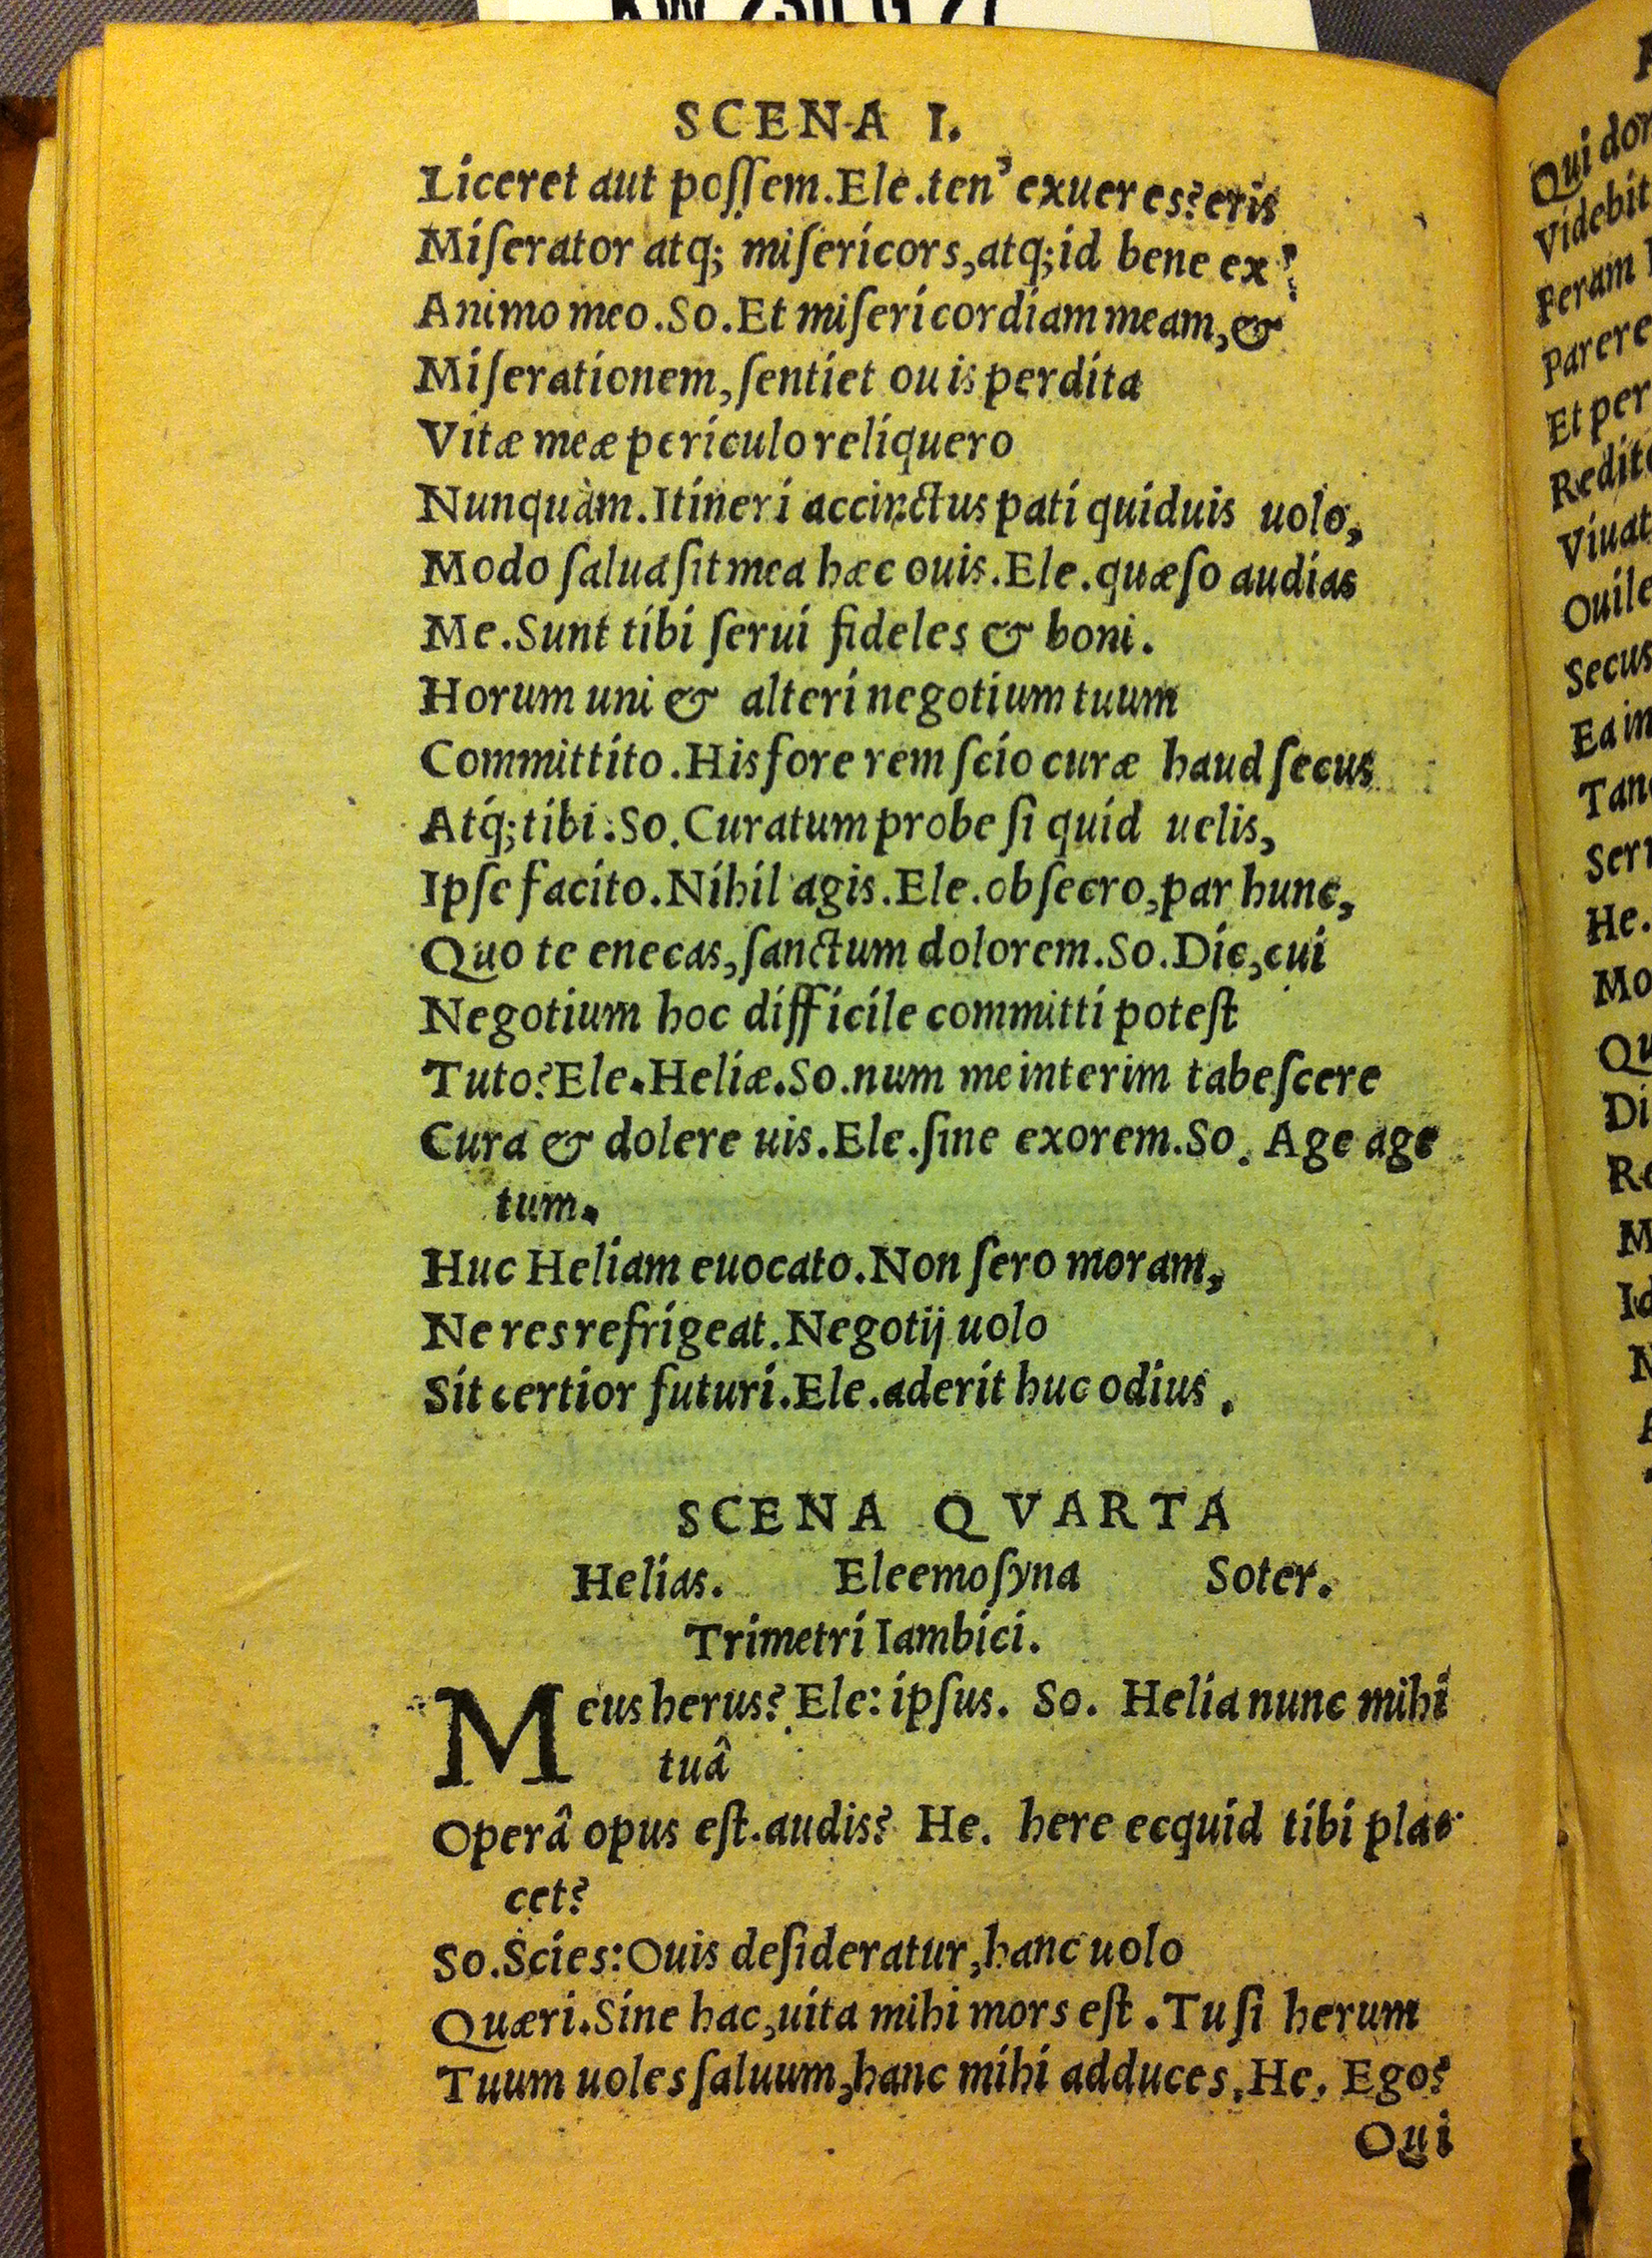 KW 230 G 27
SCENA I.
Liceret aut poſſem. Ele. ten' exueres? eris
Miſerator atq; miſericors, atq; id bene ex
Animo meo. So. Et miſericordiam meam, &
Miſerationem, ſentiet ouis perdita
Vitæ meæ periculo reliquero
Nunquàm. Itineri accinctus pati quiduis uolo,
Modo ſalua ſit mea hæc ouis. Ele. quæſo audias
Me. Sunt tibi ſerui fideles & boni.
Horum uni & alteri negotium tuum
Committito. His fore rem ſcio curæ haud ſecus
Atq́; tibi. So. Curatum probe ſi quid uelis,
Ipſe facito. Nihil agis. Ele. obſecro, par hunc,
Quo te enecas, ſanctum dolorem. So. Dic, cui
Negotium hoc difficile committi poteſt
Tuto? Ele. Heliæ. So. num me interim tabeſcere
Cura & dolere uis. Ele. ſine exorem. So. Age age
tum.
Huc Heliam euocato. Non fero moram,
Ne res refrigeat. Negotij uolo
Sit certior futuri. Ele. aderit huc odius.
SCENA QVARTA
Helias. Eleemoſyna Soter.
Trimetri Iambici.
Meus herus? Ele: ipſus. So. Helia nunc mihi
tuâ
Operâ opus eſt. audis? He. here ecquid tibi pla-
cet?
So. Scies: Ouis deſideratur, hanc uolo
Quæri. Sine hac, uita mihi mors eſt. Tu ſi herum
Tuum uoles ſaluum, hanc mihi adduces. He. Ego?
Qui
Qui
Videbit
Feram
Parere
Et per
Viuat
Ouile
Secus
He.